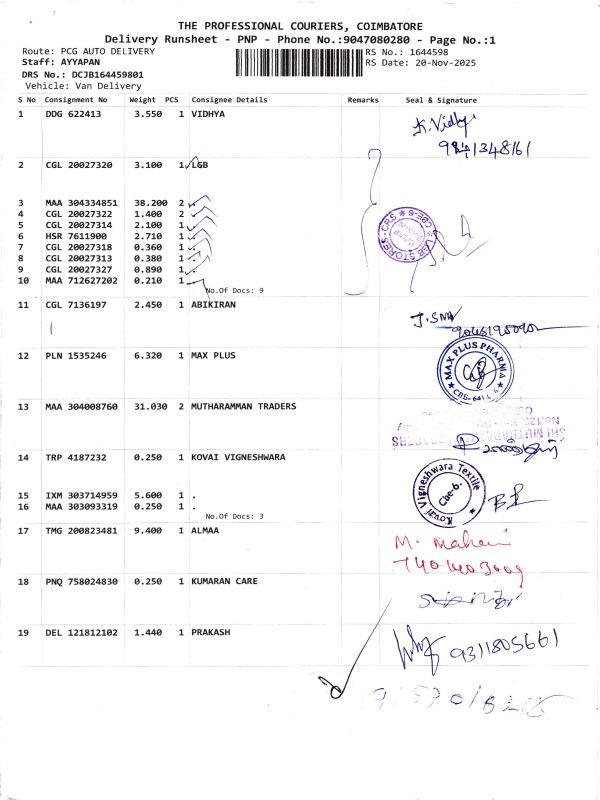 THE PROFESSIONAL COURIERS, COIMBATORE
Delivery Runsheet - PNP - Phone No.:9047080280 - Page No.:1
Route: PCG AUTO DELIVERY
RS No.: 1644598
Staff: AYYAPAN
RS Date: 20-Nov-2025
DRS No.: DCJB164459801
Vehicle: Van Delivery
S No Consignment No Weight PCS Consignee Details Remarks Seal & Signature
1 DDG 622413 3.550 1 VIDHYA
K. Vidhy
9841348161
2 CGL 20027320 3.100 1 LGB
3 MAA 304334851 38.200 2
4 CGL 20027322 1.400 2
5 CGL 20027314 2.100 1
6 HSR 7611900 2.710 1
7 CGL 20027318 0.360 1
8 CGL 20027313 0.380 1
9 CGL 20027327 0.890 1
10 MAA 712627202 0.210 1
No.Of Docs: 9
LGB STORES-CBS * CBE-6 *
11 CGL 7136197 2.450 1 ABIKIRAN
12 PLN 1535246 6.320 1 MAX PLUS
MAX PLUS PHARMA
13 MAA 304008760 31.030 2 MUTHARAMMAN TRADERS
14 TRP 4187232 0.250 1 KOVAI VIGNESHWARA
Kovai Vigneshwara Textile
Cbe-6.
15 IXM 303714959 5.600 1 .
16 MAA 303093319 0.250 1 .
No.Of Docs: 3
17 TMG 200823481 9.400 1 ALMAA
18 PNQ 758024830 0.250 1 KUMARAN CARE
19 DEL 121812102 1.440 1 PRAKASH
9311805661